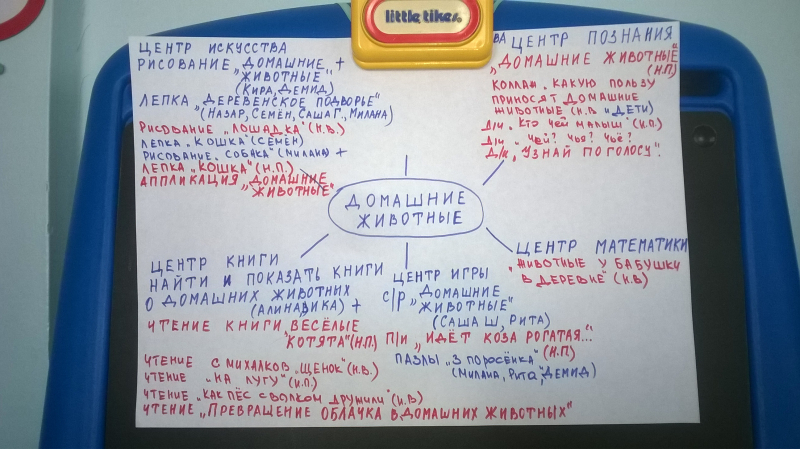 little tikes
ЦЕНТР ИСКУССТВА
РИСОВАНИЕ „ДОМАШНИЕ +
ЖИВОТНЫЕ"
(КИРА, ДЕМИД)
ЛЕПКА „ДЕРЕВЕНСКОЕ ПОДВОРЬЕ"
(НАЗАР, СЕМЁН, САША Г., МИЛАНА)
РИСОВАНИЕ „ЛОШАДКА" (Н.В.)
ЛЕПКА „КОШКА" (СЕМЁН)
РИСОВАНИЕ „СОБАКА" (МИЛАНА) +
ЛЕПКА „КОШКА" (Н.П.)
АППЛИКАЦИЯ „ДОМАШНИЕ
ЖИВОТНЫЕ"
ЦЕНТР ПОЗНАНИЯ
„ДОМАШНИЕ ЖИВОТНЫЕ"
(Н.П)
КОЛЛАЖ „КАКУЮ ПОЛЬЗУ
ПРИНОСЯТ ДОМАШНИЕ
ЖИВОТНЫЕ (Н.В и ДЕТИ)
Д/И „КТО ЧЕЙ МАЛЫШ" (Н.П.)
Д/И „ЧЕЙ? ЧЬЯ? ЧЬЁ?
Д/И „УЗНАЙ ПО ГОЛОСУ".
ДОМАШНИЕ
ЖИВОТНЫЕ
ЦЕНТР МАТЕМАТИКИ
„ЖИВОТНЫЕ У БАБУШКИ
В ДЕРЕВНЕ" (Н.В)
ЦЕНТР КНИГИ
НАЙТИ И ПОКАЗАТЬ КНИГИ
О ДОМАШНИХ ЖИВОТНИХ
(АЛИНА, ВИКА) +
ЧТЕНИЕ КНИГИ „ВЕСЁЛЫЕ
КОТЯТА" (Н.П)
ЧТЕНИЕ С МИХАЛКОВ „ЩЕНОК" (Н.В.)
ЧТЕНИЕ „НА ЛУГУ" (Н.П.)
ЧТЕНИЕ „КАК ПЁС С ВОЛКОМ ДРУЖИЛИ" (Н.В)
ЧТЕНИЕ „ПРЕВРАЩЕНИЕ ОБЛАЧКА В ДОМАШНИХ ЖИВОТНЫХ"
ЦЕНТР ИГРЫ
С/Р „ДОМАШНИЕ
ЖИВОТНЫЕ"
(САША Ш, РИТА)
П/И „ИДЁТ КОЗА РОГАТАЯ..."
(Н.П)
ПАЗЛЫ „3 ПОРОСЁНКА"
(МИЛАНА, РИТА, ДЕМИД)